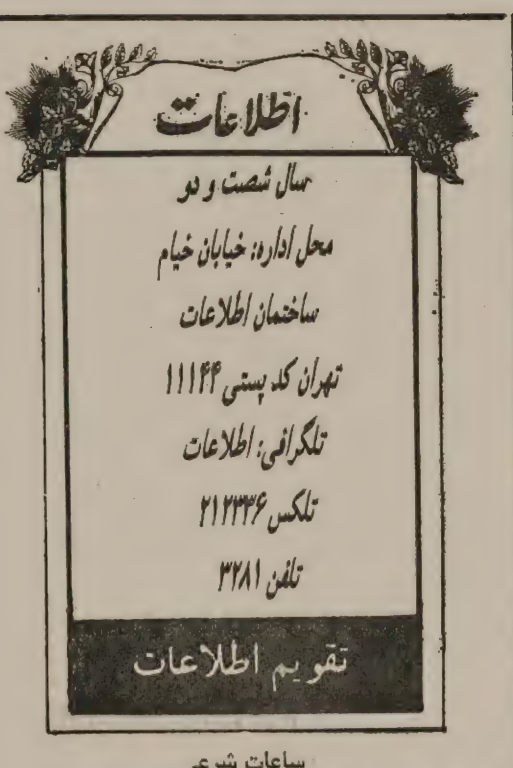 اطلاعات
سال شصت و دو
محل اداره: خیابان خیام
ساختمان اطلاعات
تهران کد پستی ۱۱۱۴۴
تلگرافی: اطلاعات
تلکس ۲۱۲۳۳۶
تلفن ۳۲۸۱
تقویم اطلاعات
ساعات شرعی